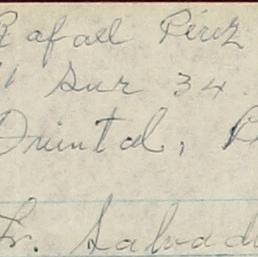 Rafael Pérez
Sur 34.
Oriental,
Sr. Salvad